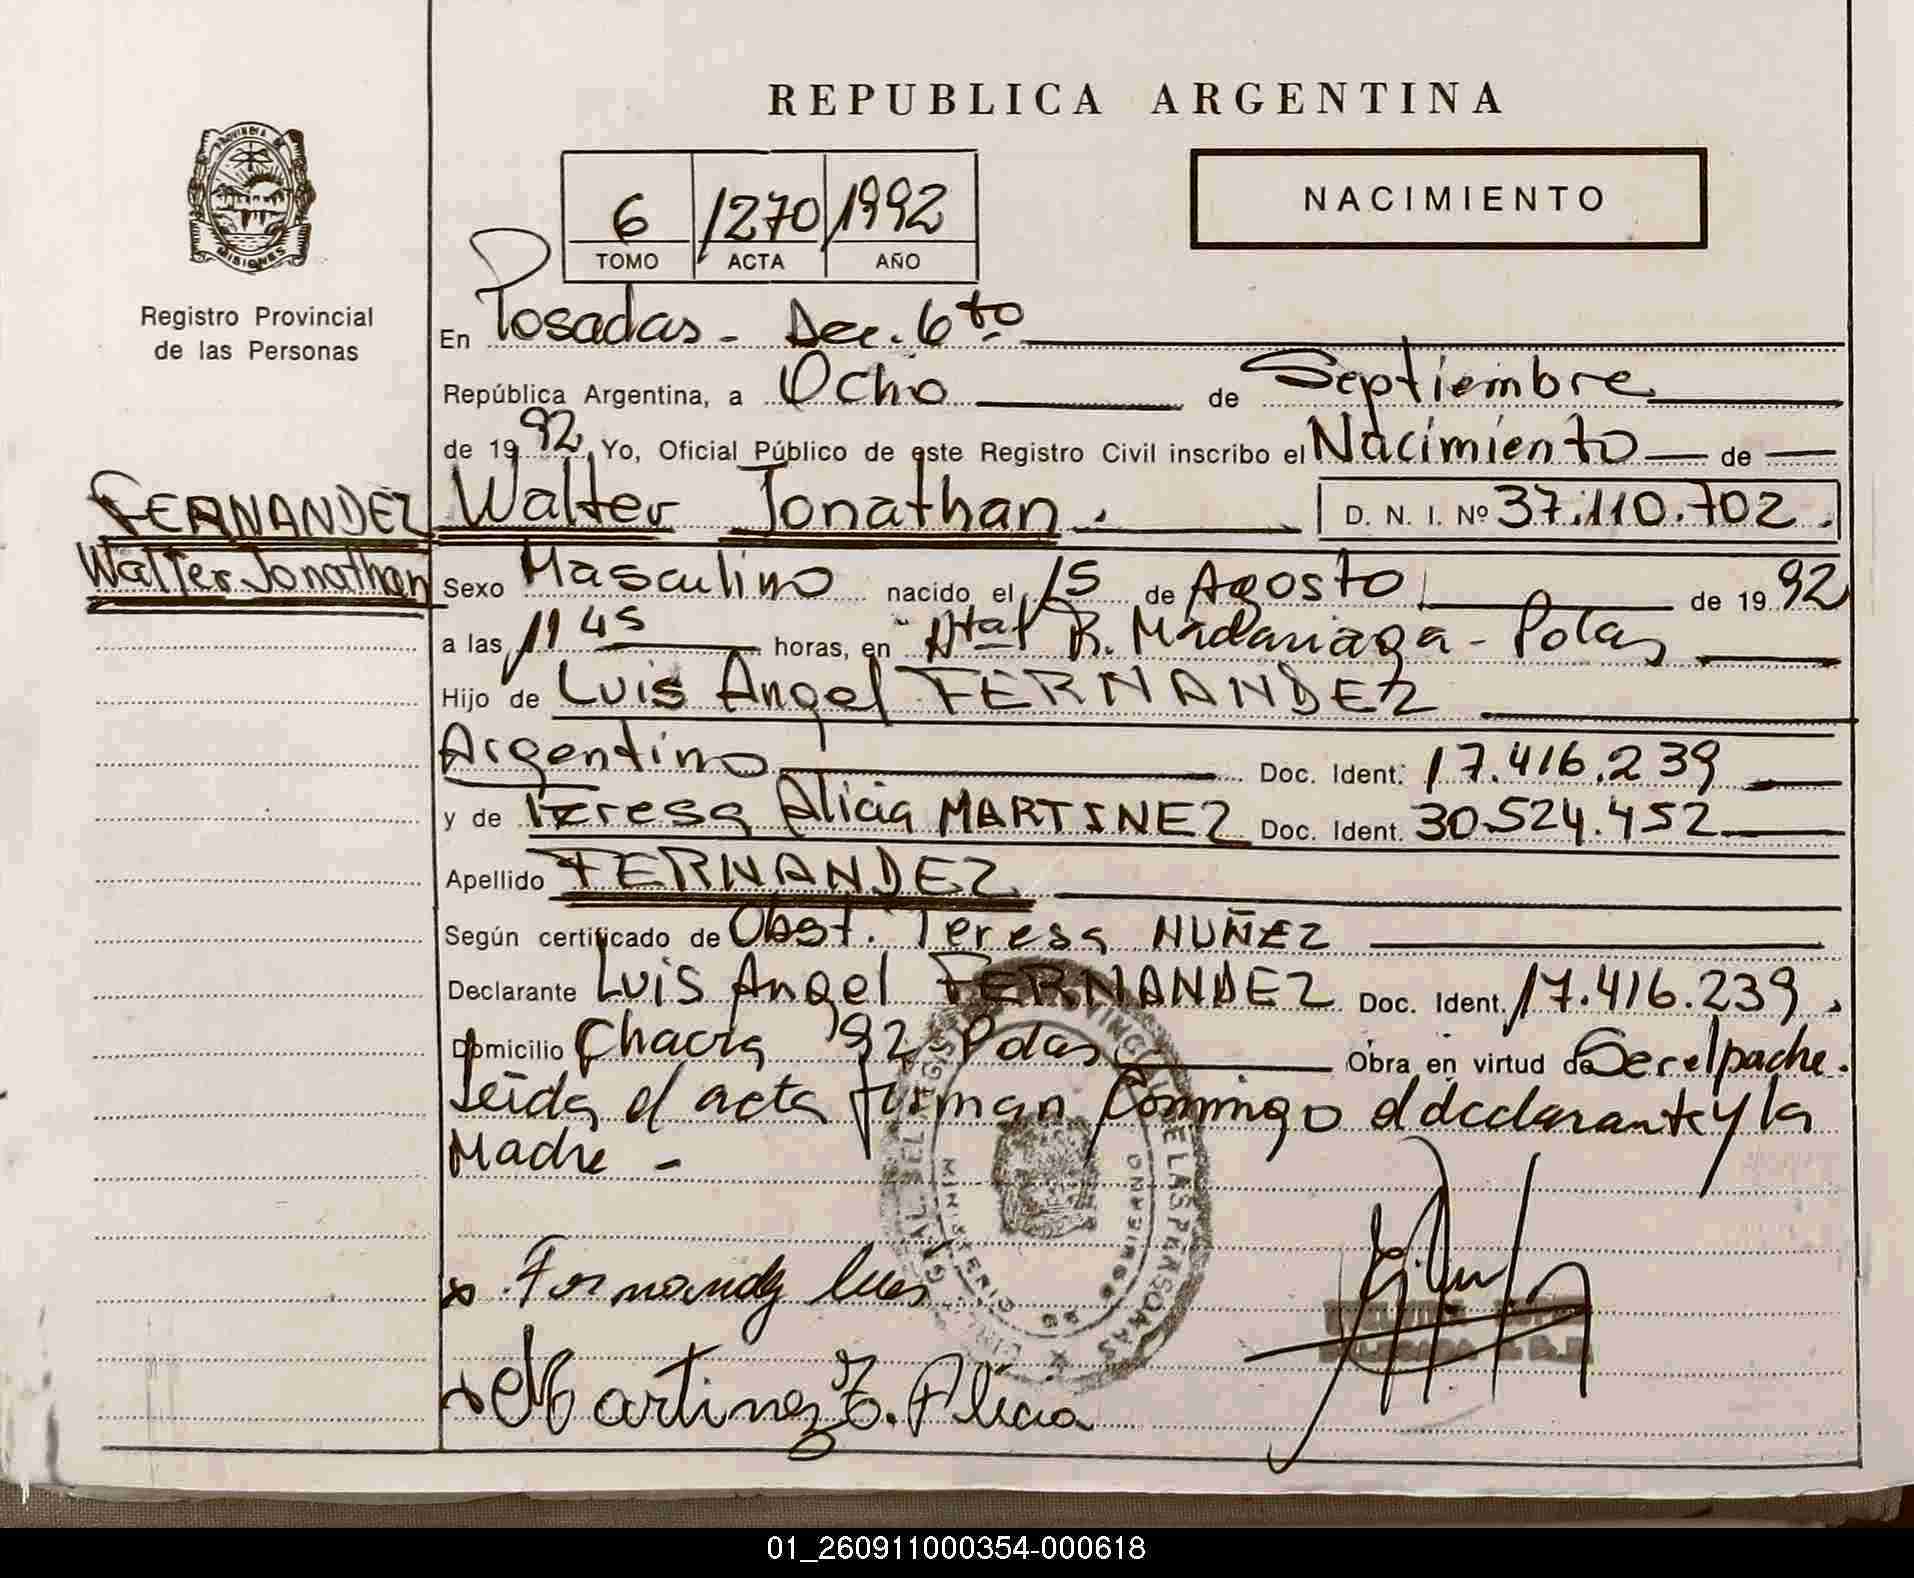 REPUBLICA ARGENTINA
NACIMIENTO
PROVINCIA DE
MISIONES
Registro Provincial
de las Personas
6 1270 1992
TOMO ACTA AÑO
En Posadas - Sec. 6to
República Argentina, a Ocho de Septiembre
de 1992, Yo, Oficial Público de este Registro Civil inscribo el Nacimiento de
FERNANDEZ
Walter Jonathan
Walter Jonathan.
D. N. I. Nº 37.110.702.
Sexo Masculino nacido el 15 de Agosto de 1992
a las 11 45 horas, en Htal R. Madariaga - Pdas
Hijo de Luis Angel FERNANDEZ
Argentino Doc. Ident: 17.416.239
y de Teresa Alicia MARTINEZ Doc. Ident. 30.524.452
Apellido FERNANDEZ
Según certificado de Obst. Teresa NUÑEZ
Declarante Luis Angel FERNANDEZ Doc. Ident. 17.416.239.
Domicilio Chacra 92 Pdas Obra en virtud de Ser el padre.
Leida el acta firman Conmigo el declarante y la
Madre -
x Fernandez Luis
x Martinez T. Alicia
MINISTERIO DE GOBIERNO
01_260911000354-000618